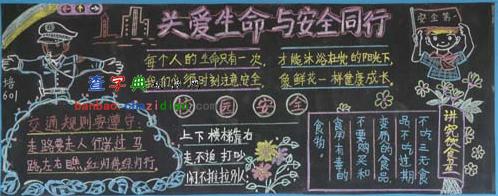 关爱生命与安全同行
安全第一
每个人的生命只有一次
我们必须时刻注意安全
才能沐浴在党的阳光下
鱼鲜花一样世度成长
查字典
banbao.chazidian.com
培
601
校园安全
交通规则要遵守：
走路要走人行道过马
路左右瞧,红灯停绿灯行
上下楼梯靠右
走不追打以
闲不推拉外
不吃三无食
品不吃过期
变质的食品
不要购买和
食用有毒的
食物。
讲究饮食卫生